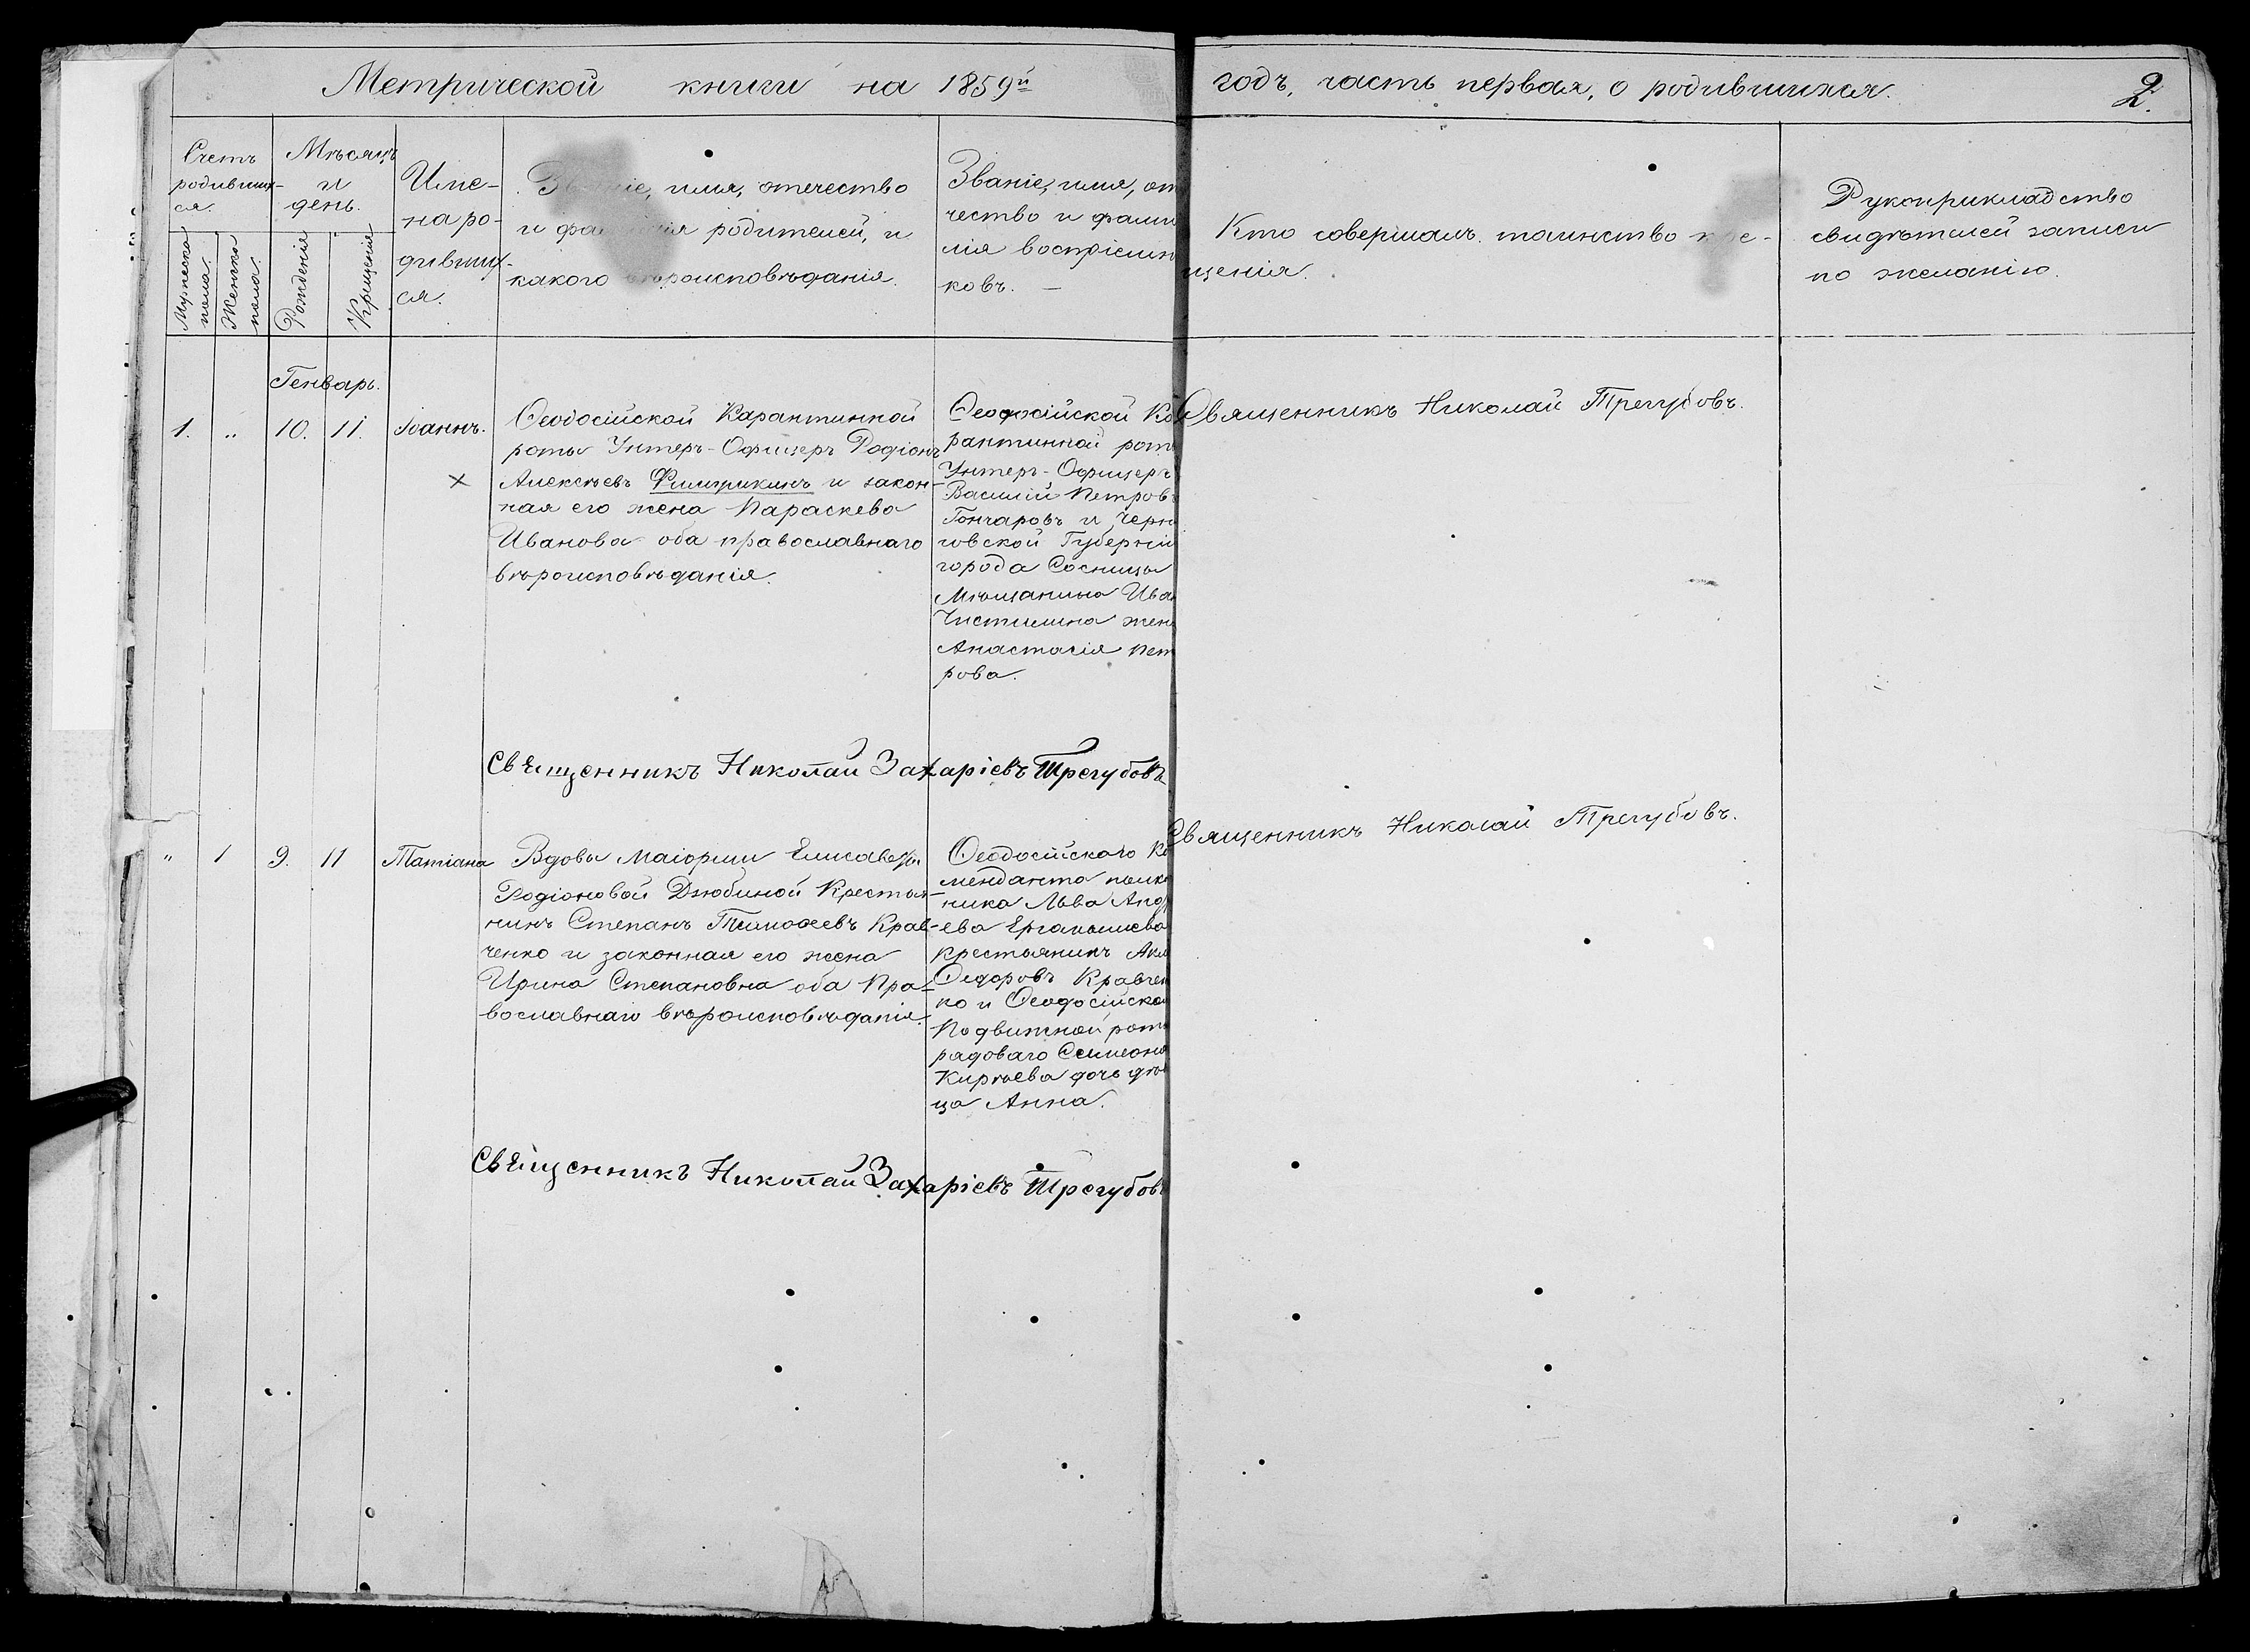 Метрической книги на 1859й годъ, часть первая, о родившихся.
2.
Счетъ
родивших-
ся.
Мужеска
пола.
Женска
пола.
Мѣсяцъ
и
день.
Рожденія
Крещенія
Име-
на ро-
дивших-
ся.
Званіе, имя, отчество
и фамилія родителей, и
какого вѣроисповѣданія.
Званіе, имя, от
чество и фами
лія воспріемни
ковъ. —
Кто совершалъ таинство кре-
щенія.
Рукоприкладство
свидѣтелей записи
по желанію.
Генварь.
1. „ 10. 11. Іоаннъ.
Ѳеодосійской Карантинной
роты Унтеръ-Офицеръ Родіонъ
Алексѣевъ и закон-
ная его жена Параскева
Иванова оба православнаго
вѣроисповѣданія.
Ѳеодосійской Ка
рантинной роты
Унтеръ-Офицеръ
Василій Петровъ
Гончаровъ и Черни
говской Губерніи
города Сосницы
Мѣщанина Иван
жена
Анастасія Пет
рова.
Священникъ Николай Трегубовъ.
Священникъ Николай Захаріевъ Трегубовъ
„ 1 9. 11 Татіана
Вдовы Маіорши Елисаветы
Родіоновой Дзюбиной Крестья-
нинъ Степанъ Тимоѳеевъ Крав-
ченко и законная его жена
Ирина Степановна оба Пра-
вославнаго вѣроисповѣданія.
Ѳеодосійскаго Ко
менданта полков
ника Льва Андре
ева
крестьянинъ
Ѳедоровъ Кравчен
ко и Ѳеодосійской
Подвижной роты
рядоваго Симеона
Кирѣева дочь дѣви
ца Анна.
Священникъ Николай Трегубовъ.
Священникъ Николай Захаріевъ Трегубовъ